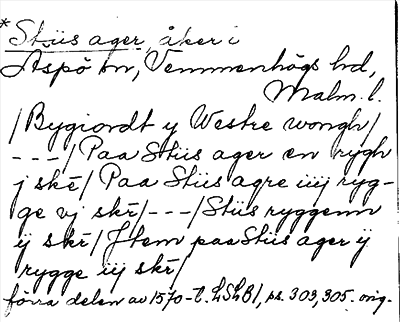 *Stiis ager, åker i
Aspö sn, Vemmenhögs hd,
Malm. l.
/Bygiordt y Westre wongh/
---/Paa Stiis ager en rygh
j skr̄/ Paa Stiis agre iiij ryg-
ge vj skr̄/---/Stiis ryggenn
ij skr̄/ Jtem paa Stiis ager ij
rygge iij skr̄/
förra delen av 1570-t. LSLB1, ps. 303, 305. orig.